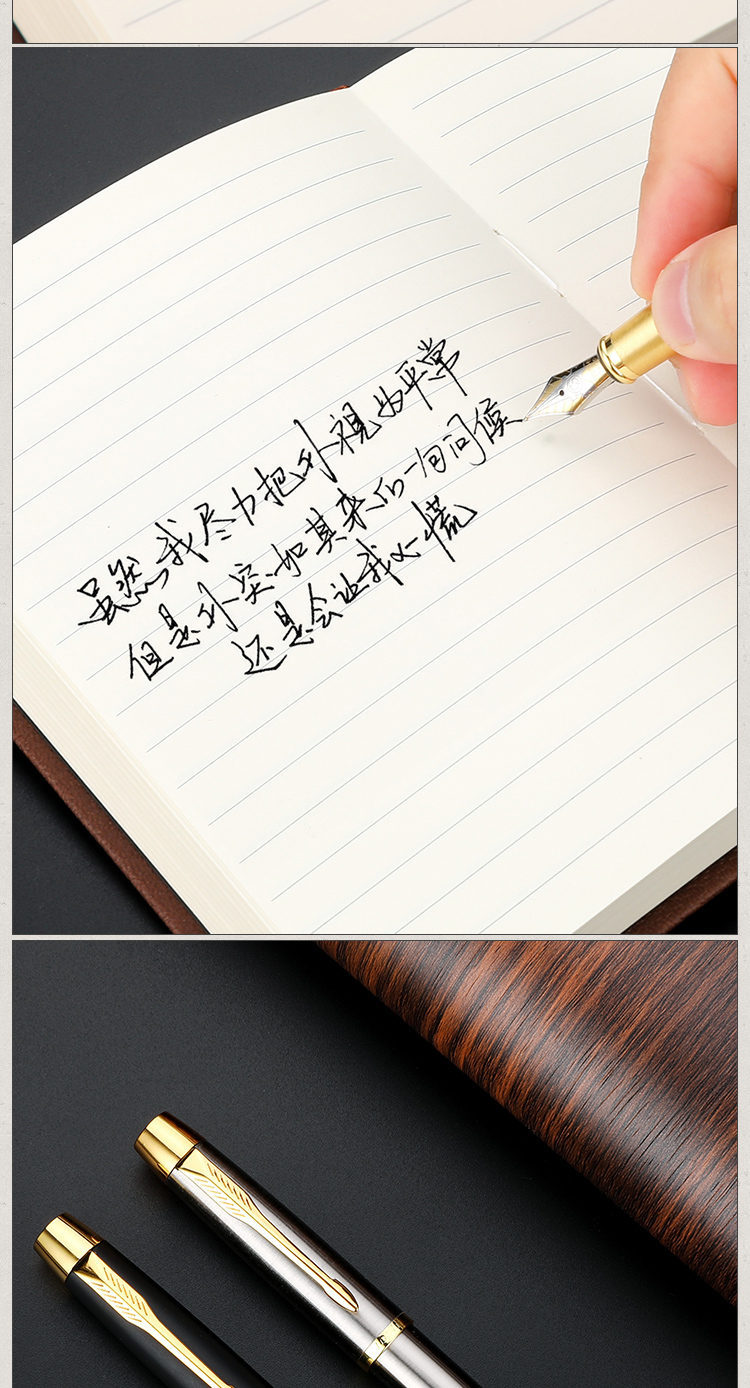 虽然我尽力把你视为平常
但是你突如其来的一句问候
还是会让我心慌